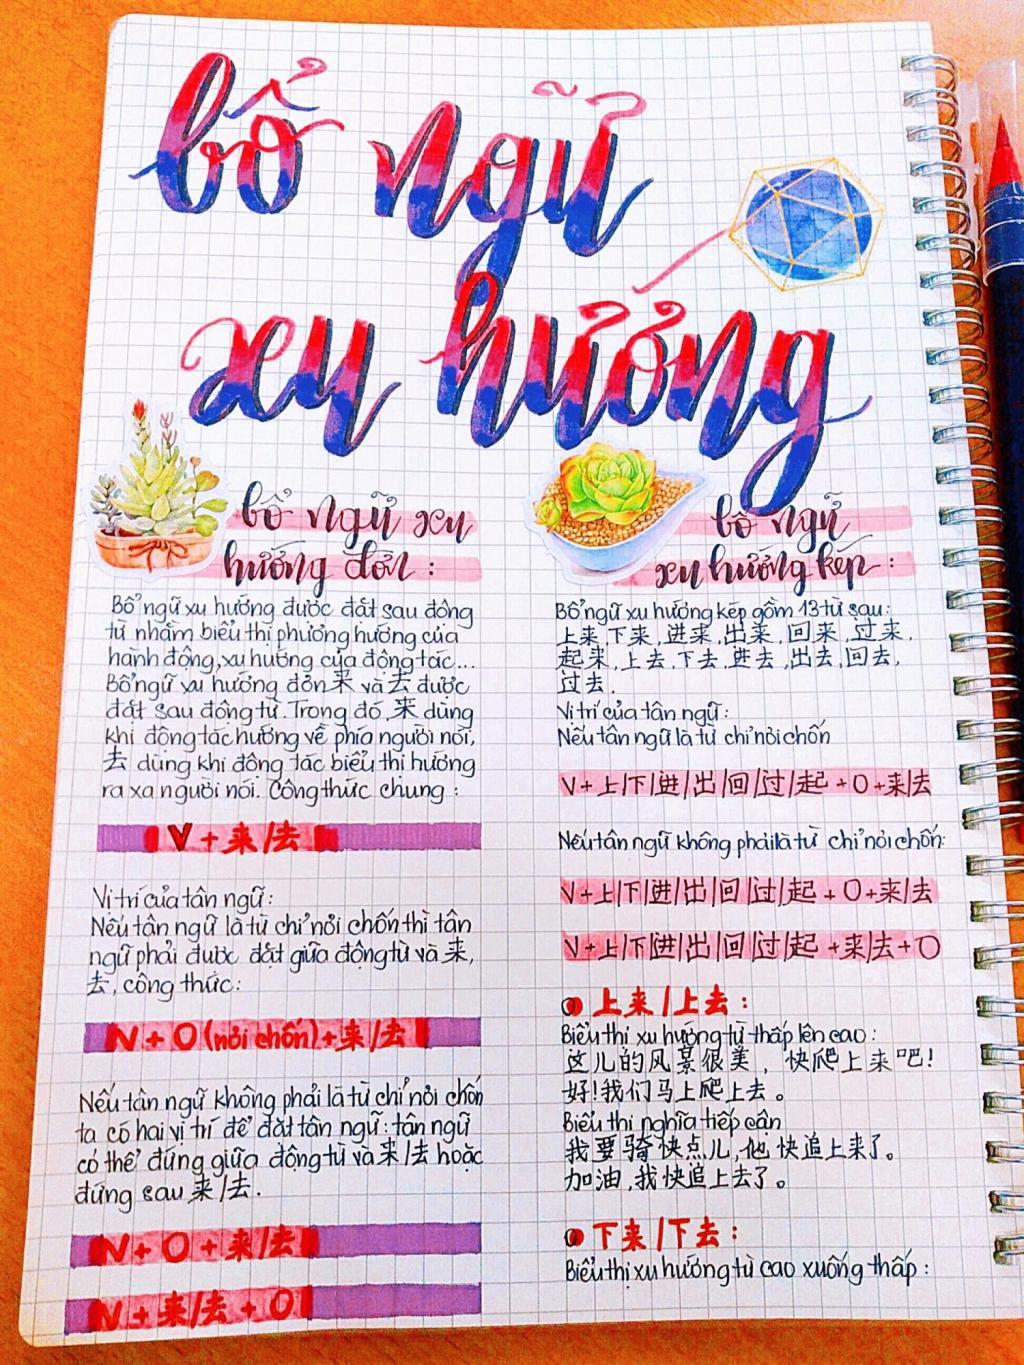 bổ ngữ
xu hướng
bổ ngữ xu
hướng đơn :
Bổ ngữ xu hướng được đặt sau động
từ nhằm biểu thị phương hướng của
hành động, xu hướng của động tác...
Bổ ngữ xu hướng đơn 来 và 去 được
đặt sau động từ. Trong đó, 来 dùng
khi động tác hướng về phía người nói,
去 dùng khi động tác biểu thị hướng
ra xa người nói. Công thức chung :
V + 来/去
Vị trí của tân ngữ :
Nếu tân ngữ là từ chỉ nơi chốn thì tân
ngữ phải được đặt giữa động từ và 来,
去, công thức :
V + O (nơi chốn) + 来/去
Nếu tân ngữ không phải là từ chỉ nơi chốn
ta có hai vị trí để đặt tân ngữ : tân ngữ
có thể đứng giữa động từ và 来/去 hoặc
đứng sau 来/去.
V + O + 来/去
V + 来/去 + O
bổ ngữ
xu hướng kép :
Bổ ngữ xu hướng kép gồm 13 từ sau :
上来, 下来, 进来, 出来, 回来, 过来,
起来, 上去, 下去, 进去, 出去, 回去,
过去.
Vị trí của tân ngữ :
Nếu tân ngữ là từ chỉ nơi chốn
V+上/下/进/出/回/过/起 + O + 来/去
Nếu tân ngữ không phải là từ chỉ nơi chốn:
V+上/下/进/出/回/过/起 + O + 来/去
V+上/下/进/出/回/过/起 + 来/去 + O
上来 / 上去 :
Biểu thị xu hướng từ thấp lên cao :
这儿的风景很美，快爬上来吧!
好!我们马上爬上去。
Biểu thị nghĩa tiếp cận
我要骑快点儿, 他快追上来了。
加油, 我快追上去了。
下来 / 下去 :
Biểu thị xu hướng từ cao xuống thấp :